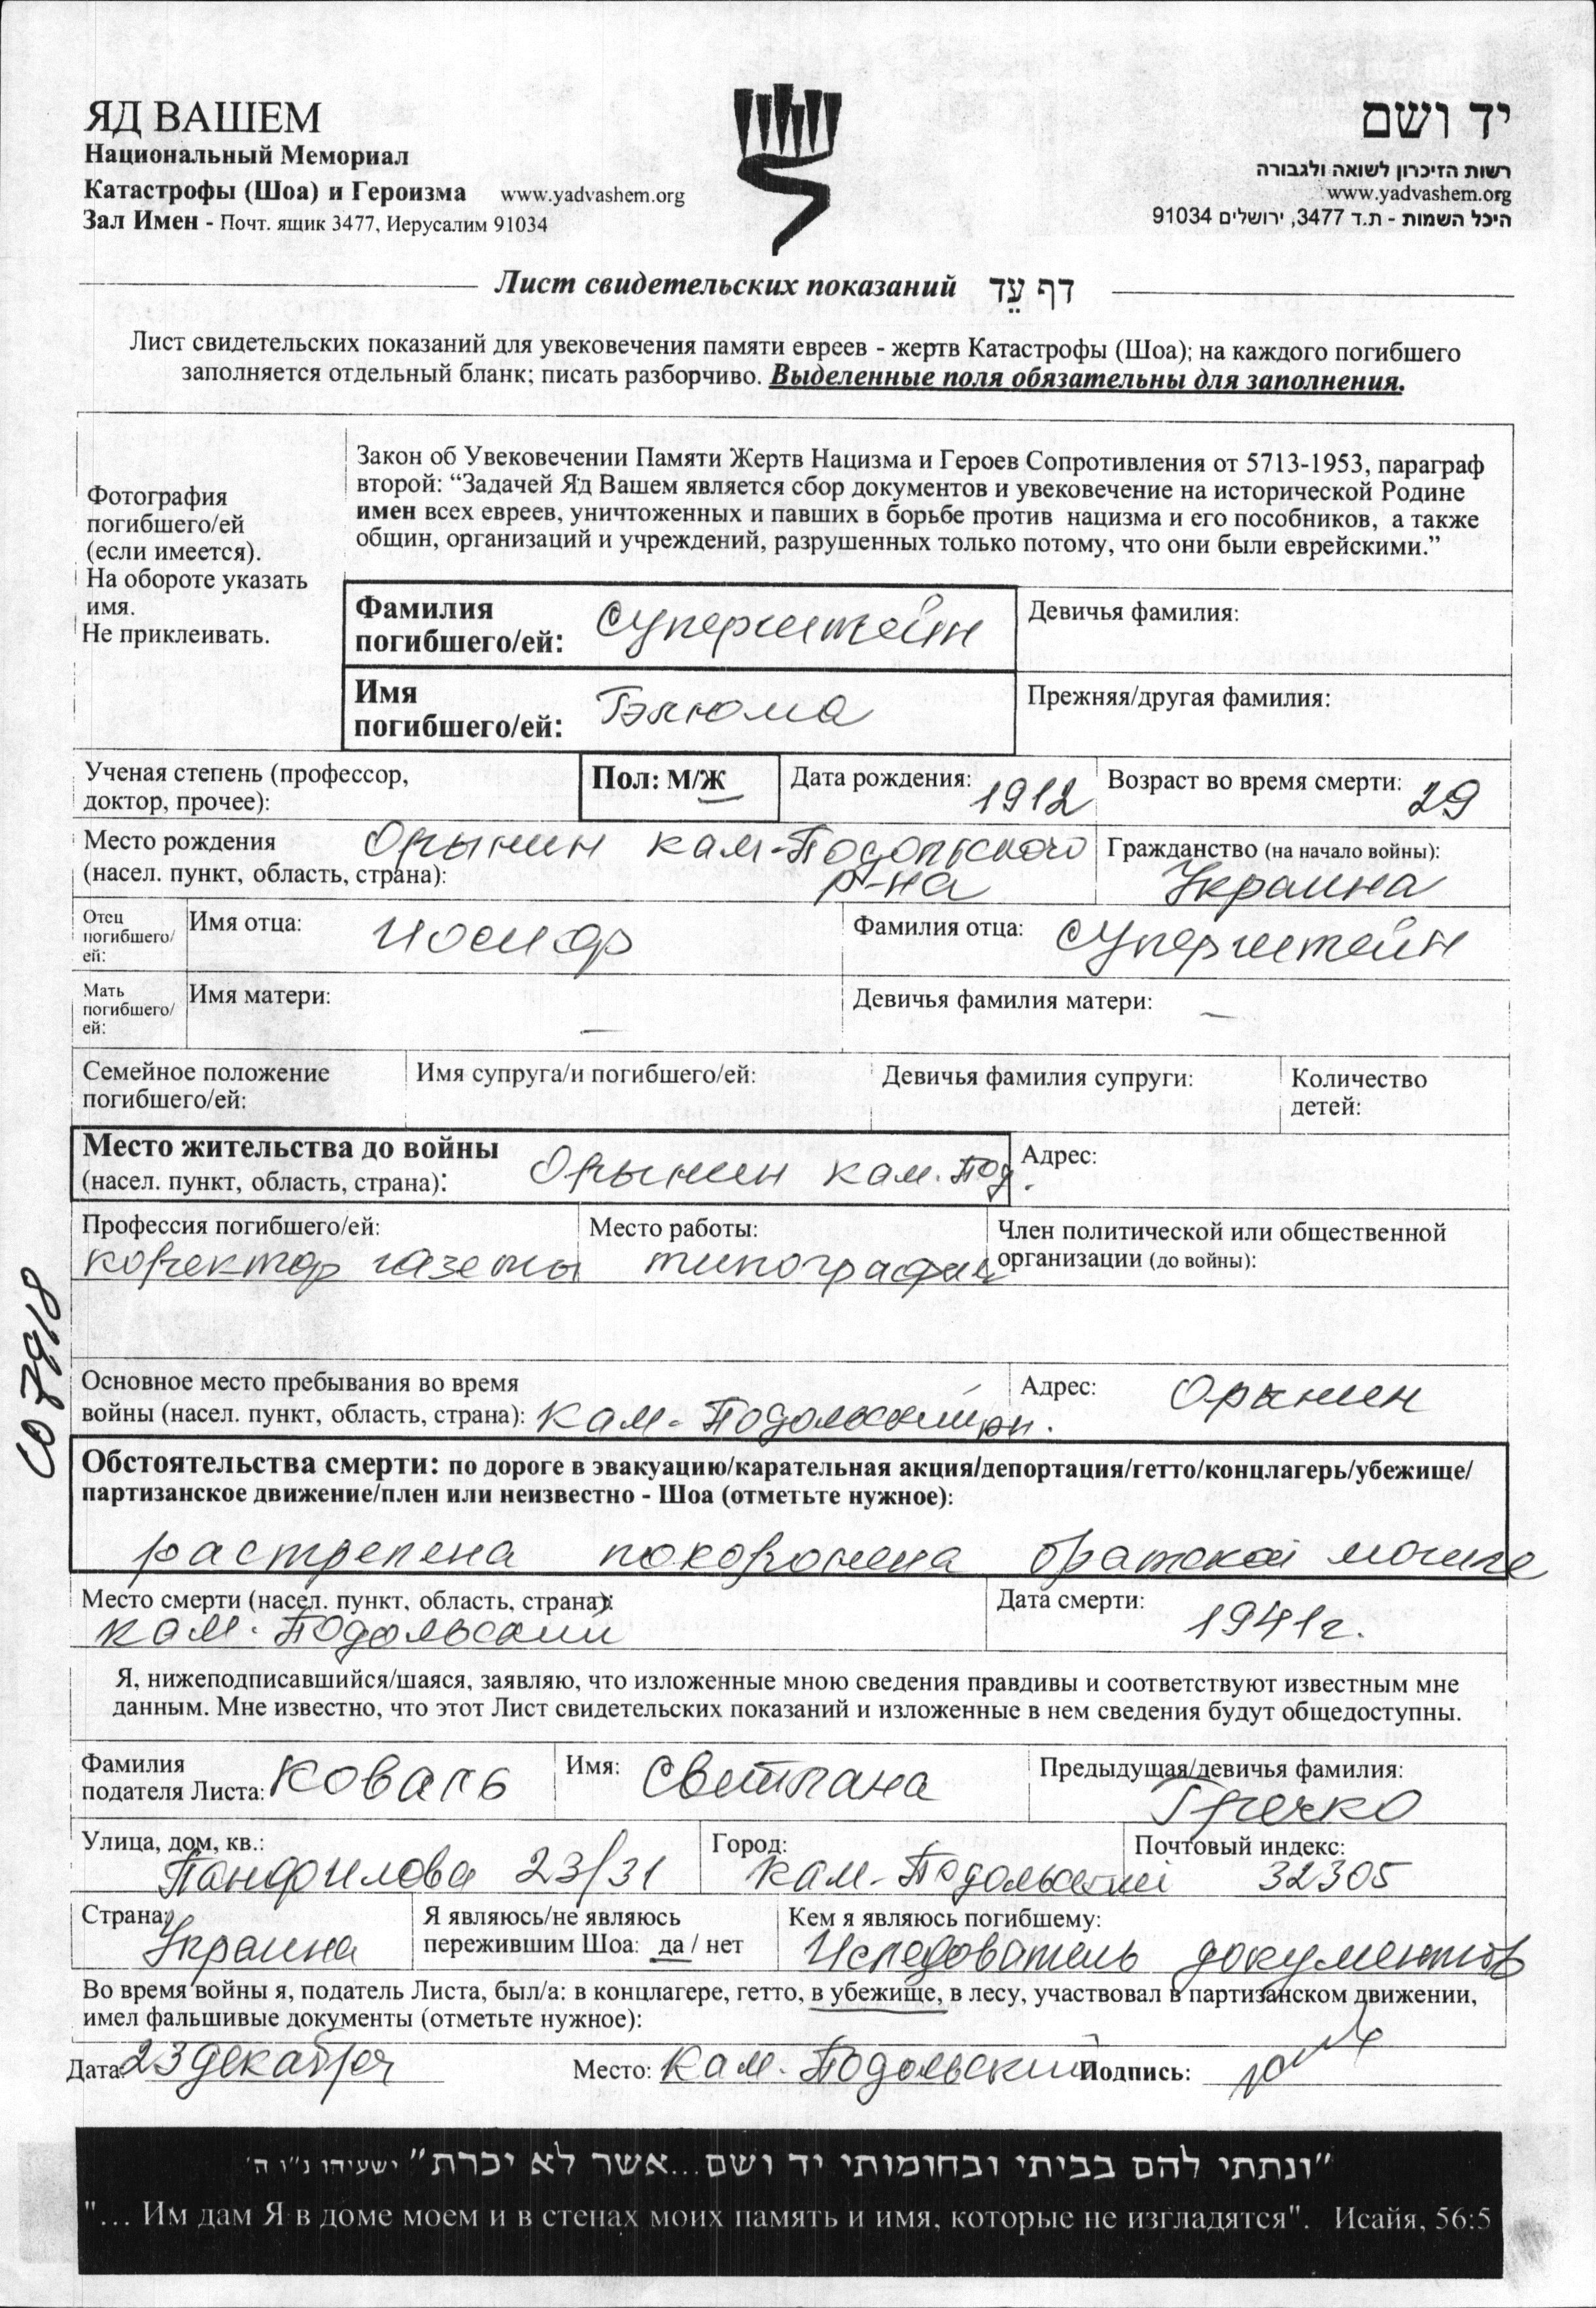 ЯД ВАШЕМ
Национальный Мемориал
Катастрофы (Шоа) и Героизма www.yadvashem.org
Зал Имен - Почт. ящик 3477, Иерусалим 91034
יד ושם
רשות הזיכרון לשואה ולגבורה
www.yadvashem.org
היכל השמות - ת.ד 3477, ירושלים 91034
Лист свидетельских показаний דף עֵד
Лист свидетельских показаний для увековечения памяти евреев - жертв Катастрофы (Шоа); на каждого погибшего
заполняется отдельный бланк; писать разборчиво. Выделенные поля обязательны для заполнения.
Фотография
погибшего/ей
(если имеется).
На обороте указать
имя.
Не приклеивать.
Закон об Увековечении Памяти Жертв Нацизма и Героев Сопротивления от 5713-1953, параграф
второй: “Задачей Яд Вашем является сбор документов и увековечение на исторической Родине
имен всех евреев, уничтоженных и павших в борьбе против нацизма и его пособников, а также
общин, организаций и учреждений, разрушенных только потому, что они были еврейскими.”
Фамилия
погибшего/ей: Суперштейн
Девичья фамилия:
Имя
погибшего/ей: Блюма
Прежняя/другая фамилия:
Ученая степень (профессор,
доктор, прочее):
Пол: М/Ж
Дата рождения: 1912
Возраст во время смерти: 29
Место рождения Орынин кам-Подольского
(насел. пункт, область, страна): р-на
Гражданство (на начало войны):
Украина
Отец
погибшего/
ей:
Имя отца: Иосиф
Фамилия отца: Суперштейн
Мать
погибшего/
ей:
Имя матери: —
Девичья фамилия матери: —
Семейное положение
погибшего/ей:
Имя супруга/и погибшего/ей:
Девичья фамилия супруги:
Количество
детей:
Место жительства до войны
(насел. пункт, область, страна): Орынин кам. Под.
Адрес:
Профессия погибшего/ей:
коректор газеты
Место работы:
типографии
Член политической или общественной
организации (до войны):
Основное место пребывания во время
войны (насел. пункт, область, страна): Кам-Подольский рн.
Адрес: Орынин
Обстоятельства смерти: по дороге в эвакуацию/карательная акция/депортация/гетто/концлагерь/убежище/
партизанское движение/плен или неизвестно - Шоа (отметьте нужное):
растрелена похоронена братской могиле
Место смерти (насел. пункт, область, страна):
кам. Подольский
Дата смерти:
1941г.
Я, нижеподписавшийся/шаяся, заявляю, что изложенные мною сведения правдивы и соответствуют известным мне
данным. Мне известно, что этот Лист свидетельских показаний и изложенные в нем сведения будут общедоступны.
Фамилия
подателя Листа: Коваль
Имя: Светлана
Предыдущая/девичья фамилия:
Гречко
Улица, дом, кв.:
Панфилова 23/31
Город:
кам-Подольский
Почтовый индекс:
32305
Страна:
Украина
Я являюсь/не являюсь
пережившим Шоа: да / нет
Кем я являюсь погибшему:
Иследователь документов
Во время войны я, податель Листа, был/а: в концлагере, гетто, в убежище, в лесу, участвовал в партизанском движении,
имел фальшивые документы (отметьте нужное):
Дата: 23 декабря Место: Кам. Подольский Подпись:
"ונתתי להם בביתי ובחומותי יד ושם...אשר לא יכרת" ישעיהו נ"ו ה'
"... Им дам Я в доме моем и в стенах моих память и имя, которые не изгладятся". Исайя, 56:5